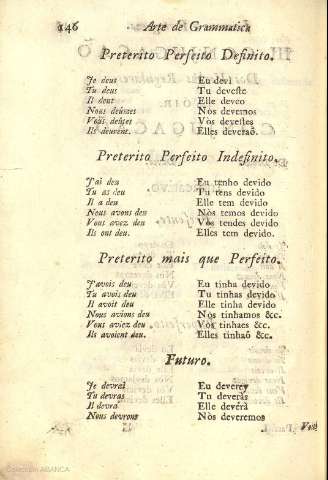 146 Arte de Grammatica
Preterito Perfeito Definito.
Je deus Eu devì
Tu deus Tu deveste
Il deut Elle deveo
Nous deûmes Nòs devemos
Vous deûtes Vòs devestes
Ils deurent. Elles deveraõ.
Preterito Perfeito Indefinito.
J'ai deu Eu tenho devido
Tu as deu Tu tens devido
Il a deu Elle tem devido
Nous avons deu Nòs temos devido
Vous avez deu Vòs tendes devido
Ils ont deu. Elles tem devido.
Preterito mais que Perfeito.
J'avois deu Eu tinha devido
Tu avois deu Tu tinhas devido
Il avoit deu Elle tinha devido
Nous avions deu Nòs tinhamos &c.
Vous aviez deu Vòs tinhaes &c.
Ils avoient deu. Elles tinhaõ &c.
Futuro.
Je devrai Eu deverey
Tu devras Tu deveràs
Il devra Elle deverà
Nous devrons Nòs deveremos
Vous
Colección ABANCA